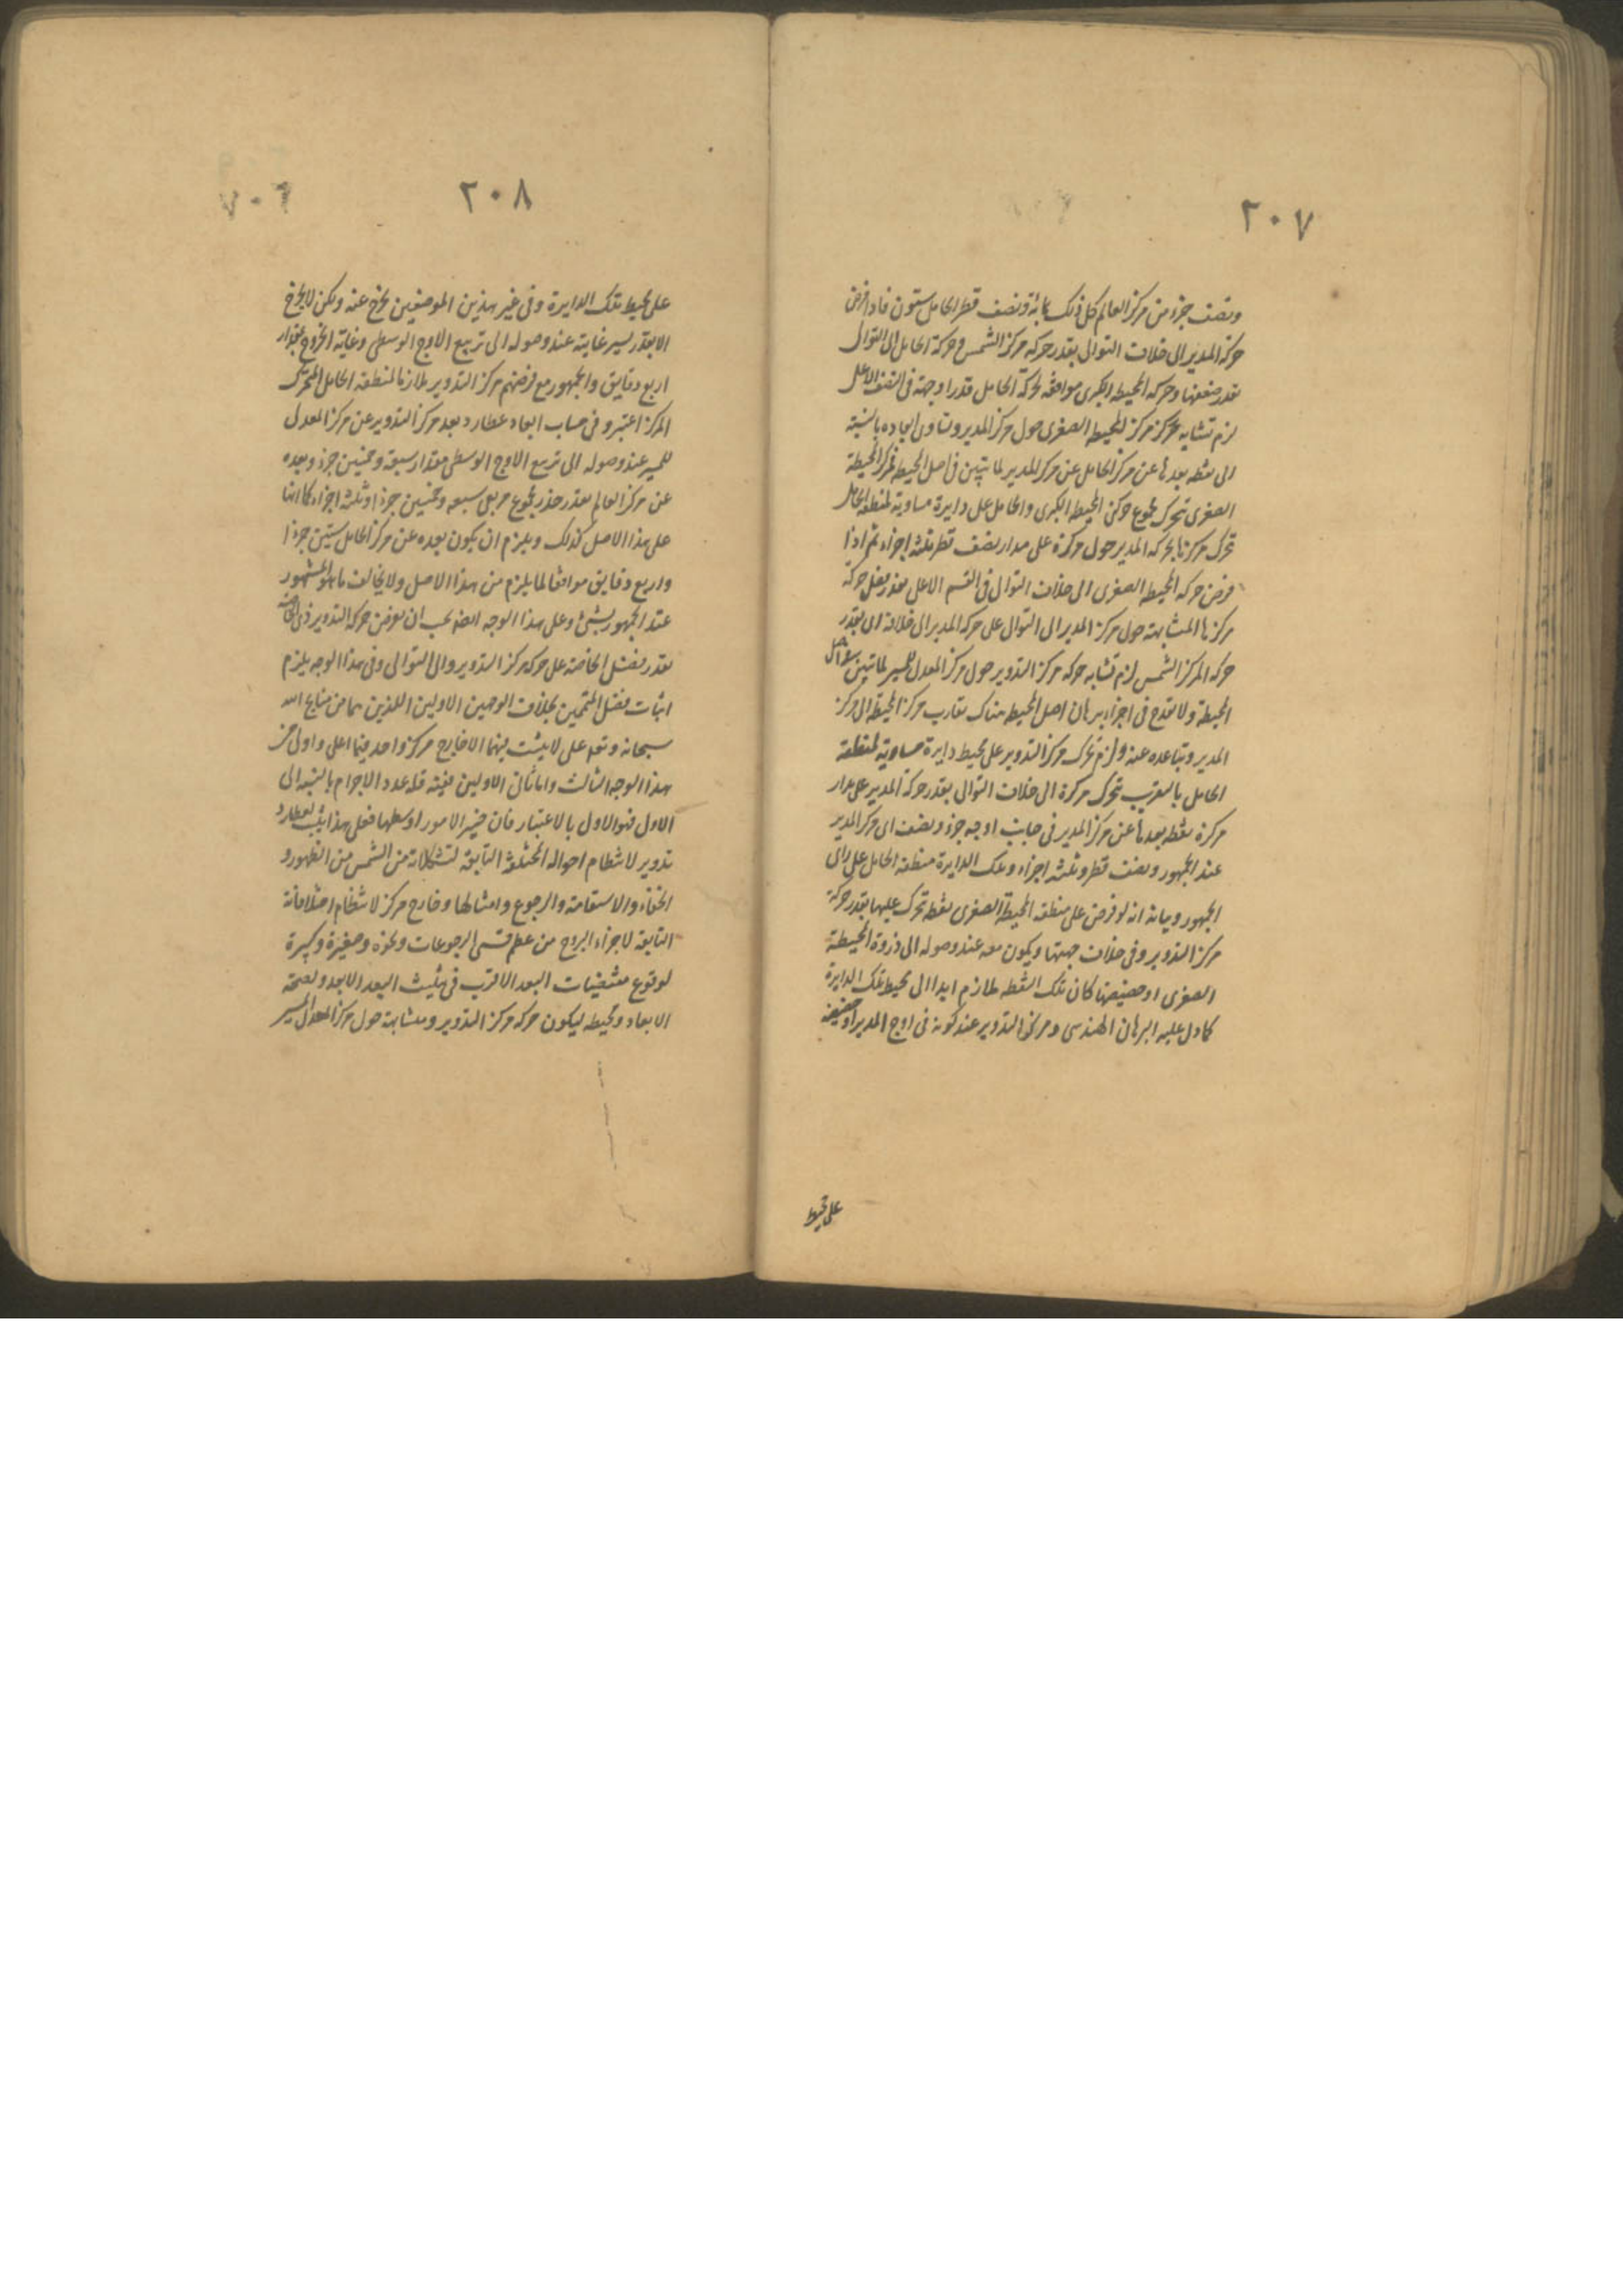 ٢٠٧
ونصف جزء من مركز العالم كل ذلك بما به ونصف قطر الحامل ستون فاذا فرض
حركة المدير الى خلاف التوالى بقدر حركة مركز الشمس وحركة الحامل الى التوالى
بقدر ضعفها وحركة المحيطة الكبرى موافقة لحركة الحامل قدرا وجهة فى النصف الاعلى
لزم تشابه حركة مركز المحيطة الصغرى حول مركز المدير وتساوى ابعاده بالنسبة
الى نقطة بعدها عن مركز الحامل عن مركز المدير لما تبين فى اصل المحيطة فمركز المحيطة
الصغرى تتحرك بمجموع حركتى المحيطة الكبرى والحامل على دايرة مساوية لمنطقة الحامل
تحرك مركزها بحركة المدير حول مركزه على مدار نصف قطره ثلثة اجزاء ثم اذا
فرض حركة المحيطة الصغرى الى خلاف التوالى فى القسم الاعلى بقدر فضل حركة
مركزها المتشابهة حول مركز المدير الى التوالى على حركة المدير الى خلافه اى بقدر
حركة مركز الشمس لزم تشابه حركة مركز التدوير حول مركز المعدل للمسير لما تبين فى اصل
المحيطة ولا يقدح فى اجزاء برهان اصل المحيطة هناك تقارب مركز المحيطة الى مركز
المدير وتباعده عنه ولزم تحرك مركز التدوير على محيط دايرة مساوية لمنطقة
الحامل بالتقريب تحرك مركزه الى خلاف التوالى بقدر حركة المدير على مدار
مركزه نقطة بعدها عن مركز المدير فى جانب اوجه جزء ونصف اى مركز المدير
عند الجمهور ونصف قطره ثلثة اجزاء وتلك الدايرة منطقة الحامل على راى
الجمهور وبيانه انه لو فرض على منطقة المحيطة الصغرى نقطة تحرك عليها بقدر حركة
مركز التدوير وفى خلاف جهتها ويكون معه عند وصوله الى ذروة المحيطة
الصغرى او حضيضها كان تلك النقطة ملازم ابدا الى محيط تلك الدايرة
كما دل عليه البرهان الهندسى ومركز التدوير عند كونه فى اوج المدير او حضيضه
على محيط
٢٠٨
على محيط تلك الدايرة وفى غير هذين الموضعين يخرج عنه ولكن لا يخرج
الا بقدر يسير غايته عند وصوله الى تربيع الاوج الوسطى وغاية الخروج بمقدار
اربع دقايق والجمهور مع فرضهم مركز التدوير ملازما لمنطقة الحامل المتحرك
المركز اعتبروا فى حساب ابعاد عطارد بعد مركز التدوير عن مركز المعدل
للمسير عند وصوله الى تربيع الاوج الوسطى مقدار سبعة وخمسين جزءا وبعده
عن مركز العالم بقدر جذر مجموع مربعى سبعه وخمسين جزءا وثلثة اجزاء كما انها
على هذا الاصل كذلك ويلزم ان يكون بعده عن مركز الحامل ستين جزءا
واربع دقايق موافقا لما يلزم من هذا الاصل ولا يخالف ما هو المشهور
عند الجمهور بشئ وعلى هذا الوجه ايضا يجب ان يفرض حركة التدوير فى الخاصة
بقدر فضل الخاصة على حركة مركز التدوير والى التوالى وفى هذا الوجه يلزم
اثبات فضل المتممين بخلاف الوجهين الاولين اللذين هما من منايح الله
سبحانه وتعالى على لا يثبت فيهما الا خارج مركز واحد فهما اعلى واولى من
هذا الوجه الثالث واما ثانى الاولين ففيه قلة عدد الاجرام بالنسبة الى
الاول فهو الاولى بالاعتبار فان خير الامور اوسطها فعلى هذا يثبت لعطارد
تدوير لانتظام احواله المختلفة التابعة لتشكلاته من الشمس من الظهور و
الخفاء والاستقامة والرجوع وامثالها وخارج مركز لانتظام اختلافاته
التابعة لاجزاء البروج من عظم قسى الرجوعات ونحوه وصغيرة وكبيرة
لوقوع مقتضيات البعد الاقرب فى تثليث البعد الابعد ولصحة
الابعاد ومحيطه ليكون حركة مركز التدوير ومتشابهة حول مركز المعدل للمسير